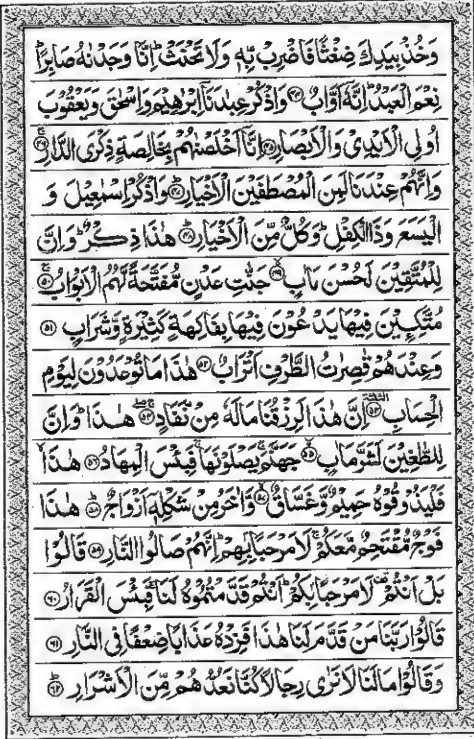 وَخُذْ بِيَدِكَ ضِغْثًا فَاضْرِبْ بِّهٖ وَلَا تَحْنَثْ ؕ اِنَّا وَجَدْنٰهُ صَابِرًا ؕ
نِعْمَ الْعَبْدُ ؕ اِنَّهٗۤ اَوَّابٌ ﴿۴۴﴾ وَاذْكُرْ عِبٰدَنَاۤ اِبْرٰهِيْمَ وَاِسْحٰقَ وَيَعْقُوْبَ
اُولِى الْاَيْدِىْ وَالْاَبْصَارِ ﴿۴۵﴾ اِنَّاۤ اَخْلَصْنٰهُمْ بِخَالِصَةٍ ذِكْرَى الدَّارِ ﴿۴۶﴾
وَاِنَّهُمْ عِنْدَنَا لَمِنَ الْمُصْطَفَيْنَ الْاَخْيَارِ ﴿۴۷﴾ وَاذْكُرْ اِسْمٰعِيْلَ وَ
الْيَسَعَ وَذَا الْكِفْلِ ؕ وَكُلٌّ مِّنَ الْاَخْيَارِ ﴿۴۸﴾ هٰذَا ذِكْرٌ ؕ وَاِنَّ
لِلْمُتَّقِيْنَ لَحُسْنَ مَاٰبٍ ﴿۴۹﴾ جَنّٰتِ عَدْنٍ مُّفَتَّحَةً لَّهُمُ الْاَبْوَابُ ﴿۵۰﴾
مُتَّكِـِٕيْنَ فِيْهَا يَدْعُوْنَ فِيْهَا بِفَاكِهَةٍ كَثِيْرَةٍ وَّشَرَابٍ ﴿۵۱﴾
وَعِنْدَهُمْ قٰصِرٰتُ الطَّرْفِ اَتْرَابٌ ﴿۵۲﴾ هٰذَا مَا تُوْعَدُوْنَ لِيَوْمِ
الْحِسَابِ ﴿۵۳﴾ اِنَّ هٰذَا لَرِزْقُنَا مَا لَهٗ مِنْ نَّفَادٍ ﴿۵۴﴾ هٰذَا ؕ وَاِنَّ
لِلطّٰغِيْنَ لَشَرَّ مَاٰبٍ ﴿۵۵﴾ جَهَنَّمَ ۚ يَصْلَوْنَهَا ۚ فَبِئْسَ الْمِهَادُ ﴿۵۶﴾ هٰذَا ۙ
فَلْيَذُوْقُوْهُ حَمِيْمٌ وَّغَسَّاقٌ ﴿۵۷﴾ وَّاٰخَرُ مِنْ شَكْلِهٖۤ اَزْوَاجٌ ﴿۵۸﴾ هٰذَا
فَوْجٌ مُّقْتَحِمٌ مَّعَكُمْ ۚ لَا مَرْحَبًاۢ بِهِمْ ؕ اِنَّهُمْ صَالُوا النَّارِ ﴿۵۹﴾ قَالُوْا
بَلْ اَنْتُمْ ۟ لَا مَرْحَبًاۢ بِكُمْ ؕ اَنْتُمْ قَدَّمْتُمُوْهُ لَنَا ۚ فَبِئْسَ الْقَرَارُ ﴿۶۰﴾
قَالُوْا رَبَّنَا مَنْ قَدَّمَ لَنَا هٰذَا فَزِدْهُ عَذَابًا ضِعْفًا فِى النَّارِ ﴿۶۱﴾
وَقَالُوْا مَا لَنَا لَا نَرٰى رِجَالًا كُنَّا نَعُدُّهُمْ مِّنَ الْاَشْرَارِ ﴿۶۲﴾